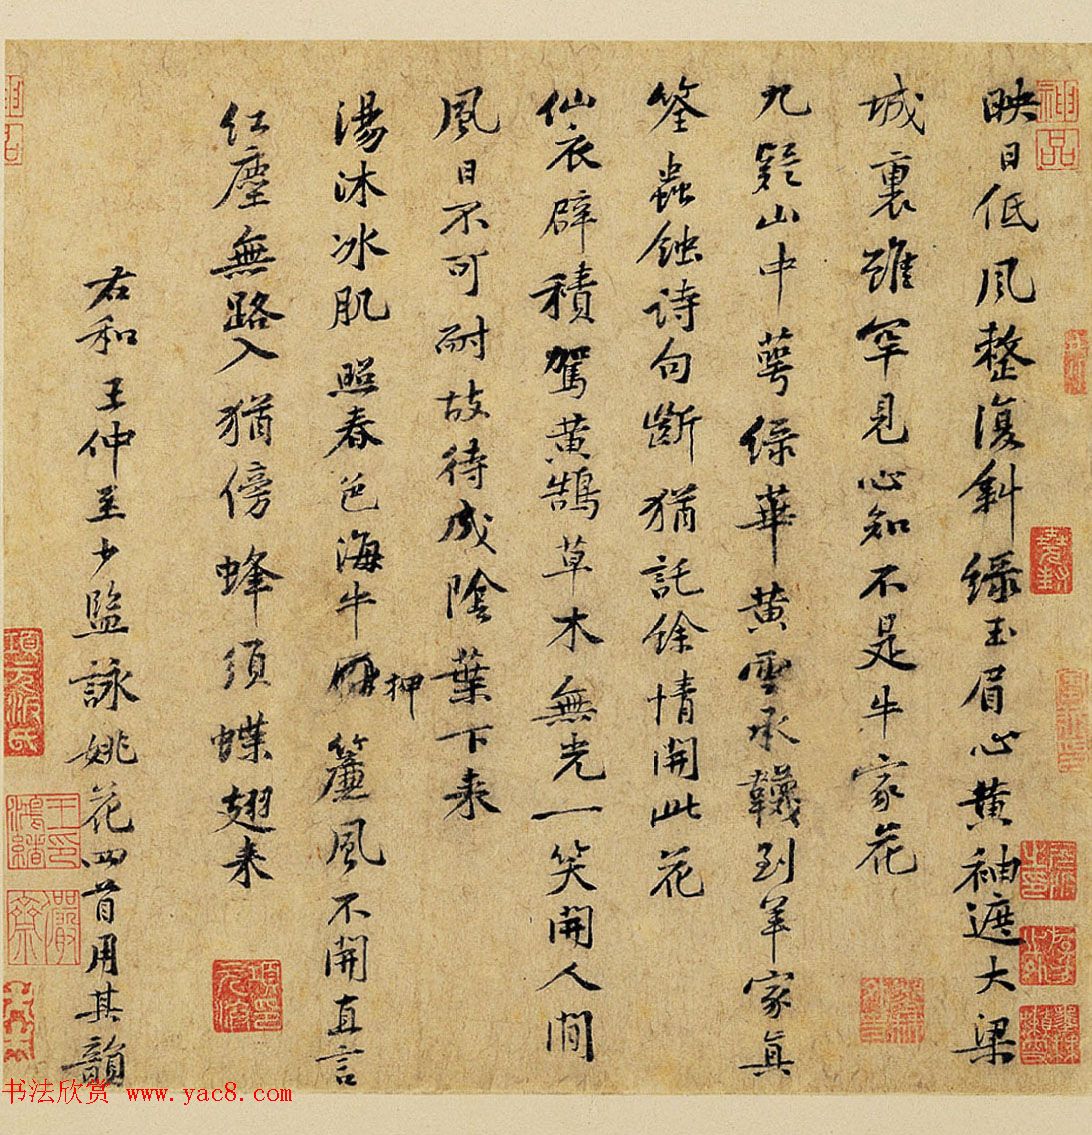 映日低風整復斜綠玉眉心黃袖遮大梁
城裏雖罕見心知不是牛家花
九疑山中萼綠華黃雲承韈到羊家真
筌蟲蝕詩句斷猶託餘情開此花
仙衣襞積駕黃鵠草木無光一笑開人間
風日不可耐故待成陰葉下來
湯沐冰肌照春色海牛押簾風不開直言
紅塵無路入猶傍蜂須蝶翅來
右和王仲至少監詠姚花四首用其韻
神品
項元汴氏
王鴻緒印
儼齋
項元汴印
书法欣赏 www.yac8.com